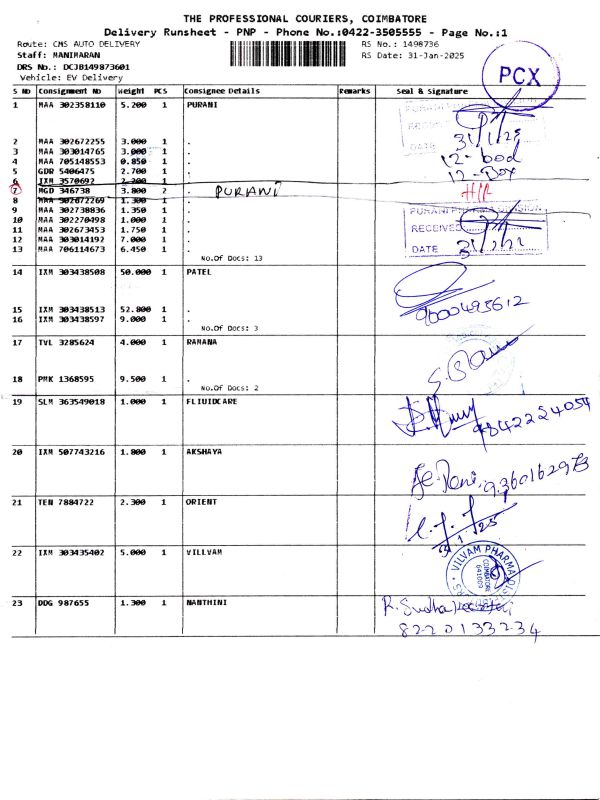 THE PROFESSIONAL COURIERS, COIMBATORE
Delivery Runsheet - PNP - Phone No.:0422-3505555 - Page No.:1
Route: CMS AUTO DELIVERY RS No.: 1498736
Staff: MANIMARAN RS Date: 31-Jan-2025
DRS No.: DCJB149873601
Vehicle: EV Delivery
PCX
S No Consignment No Weight PCS Consignee Details Remarks Seal & Signature
1 MAA 302358110 5.200 1 PURANI
RECEIVED
DATE 31/1/25
2 MAA 302672255 3.000 1 .
3 MAA 303014765 3.000 1 .
4 MAA 705148553 0.850 1 . 12-bod
5 GDR 5406475 2.700 1 . 12-Box
6 IXM 3570692 2.200 1 .
7 MGD 346738 3.800 2 . PURANI
8 MAA 302672269 1.300 1 .
9 MAA 302738836 1.350 1 . PURANI PHARMA DIVISION
10 MAA 302270498 1.000 1 .
11 MAA 302673453 1.750 1 . RECEIVED
12 MAA 303014192 7.000 1 .
13 MAA 706114673 6.450 1 . DATE
No.Of Docs: 13
14 IXM 303438508 50.000 1 PATEL
9600495612
15 IXM 303438513 52.800 1 .
16 IXM 303438597 9.000 1 .
No.Of Docs: 3
17 TVL 3285624 4.000 1 RAMANA
18 PMK 1368595 9.500 1 .
No.Of Docs: 2
19 SLM 363549018 1.000 1 FLIUIDCARE
9842224054
20 IXM 507743216 1.800 1 AKSHAYA
9360162973
21 TEN 7884722 2.300 1 ORIENT
22 IXM 303435402 5.000 1 VILLVAM
VILVAM PHARMA DISTRIBUTORS
COIMBATORE
23 DDG 987655 1.300 1 NANTHINI
R. Sudha
8220133234